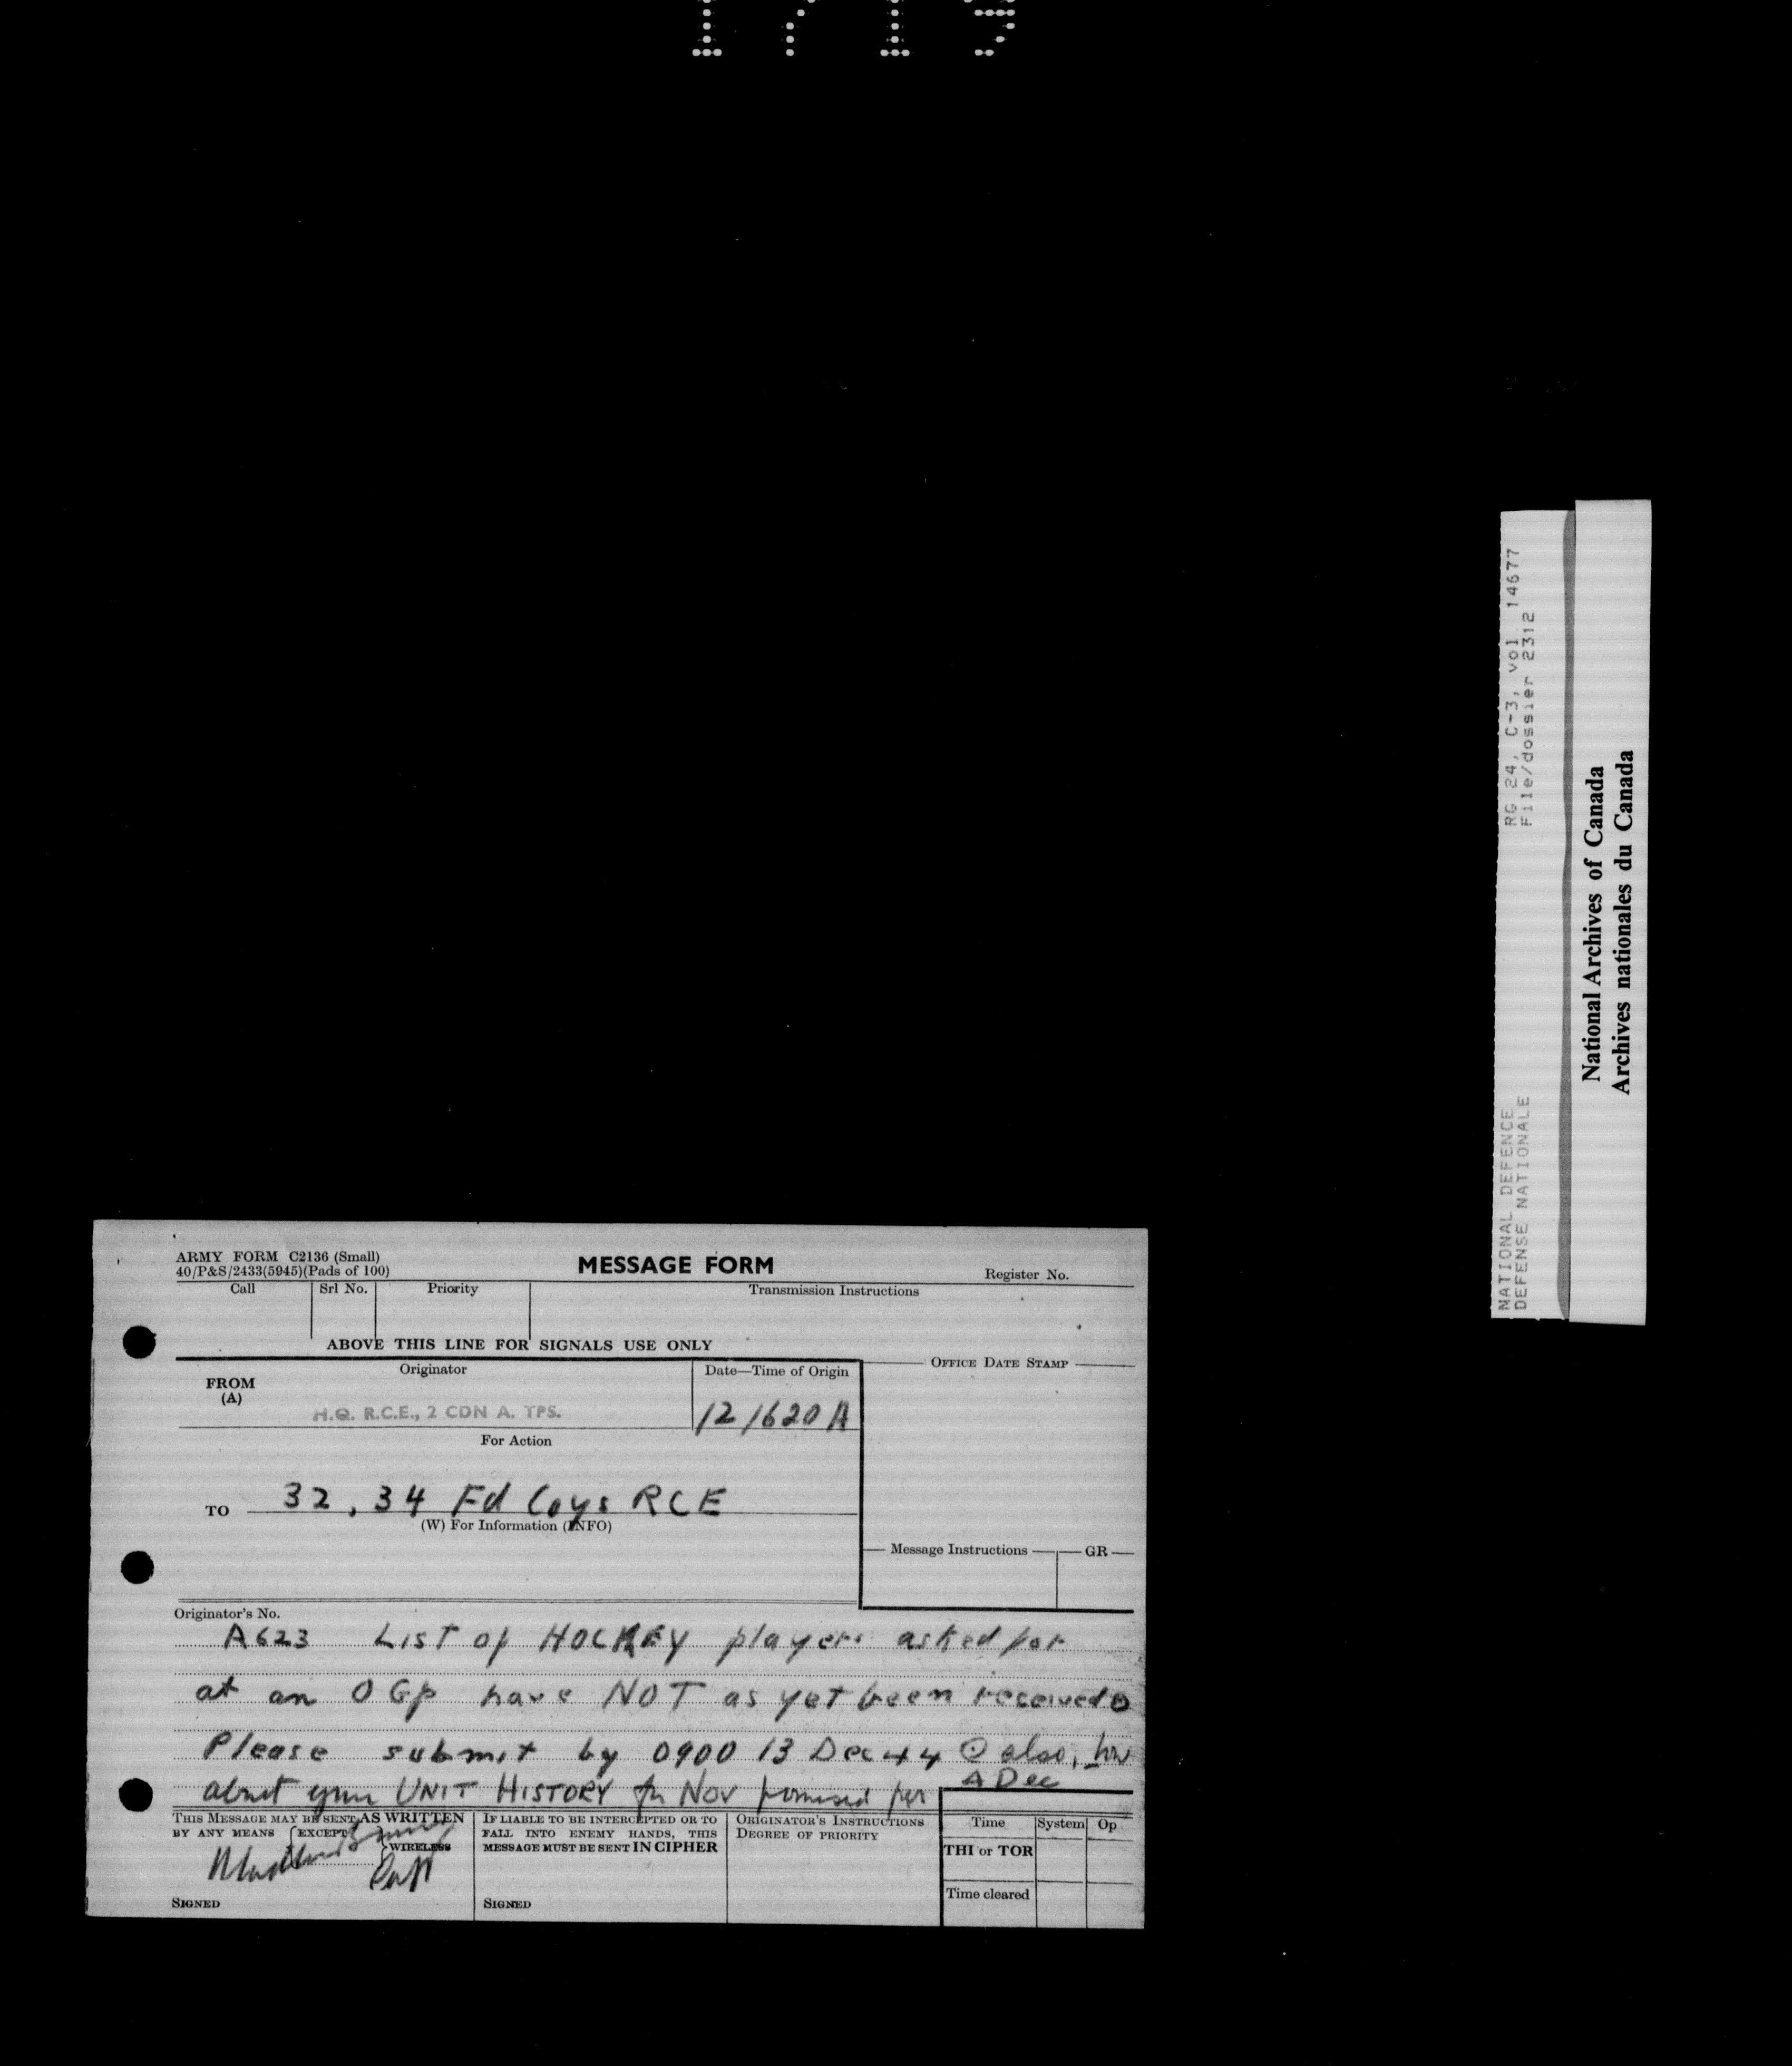 1719
RG 24, C-3, vol. 14677
File/dossier 2312
NATIONAL DEFENCE
DEFENSE NATIONALE
National Archives of Canada
Archives nationales du Canada
ARMY FORM C2136 (Small)
40/P&S/2433(5945)(Pads of 100)
MESSAGE FORM
Register No.
Call
Srl No.
Priority
Transmission Instructions
ABOVE THIS LINE FOR SIGNALS USE ONLY
FROM
(A)
Originator
Date—Time of Origin
OFFICE DATE STAMP
H.Q. R.C.E., 2 CDN A. TPS.
121620A
For Action
TO 32, 34 Fd Coys RCE
(W) For Information (INFO)
Message Instructions
GR
Originator's No.
A623 List of HOCKEY players asked for
at an O Gp have NOT as yet been received ⊙
Please submit by 0900 13 Dec 44 ⊙ also, how
about your UNIT HISTORY for Nov promised for
4 Dec
THIS MESSAGE MAY BE SENT AS WRITTEN
BY ANY MEANS EXCEPT
WIRELESS
SIGNED
IF LIABLE TO BE INTERCEPTED OR TO
FALL INTO ENEMY HANDS, THIS
MESSAGE MUST BE SENT IN CIPHER
SIGNED
ORIGINATOR'S INSTRUCTIONS
DEGREE OF PRIORITY
Time
System
Op
THI or TOR
Time cleared